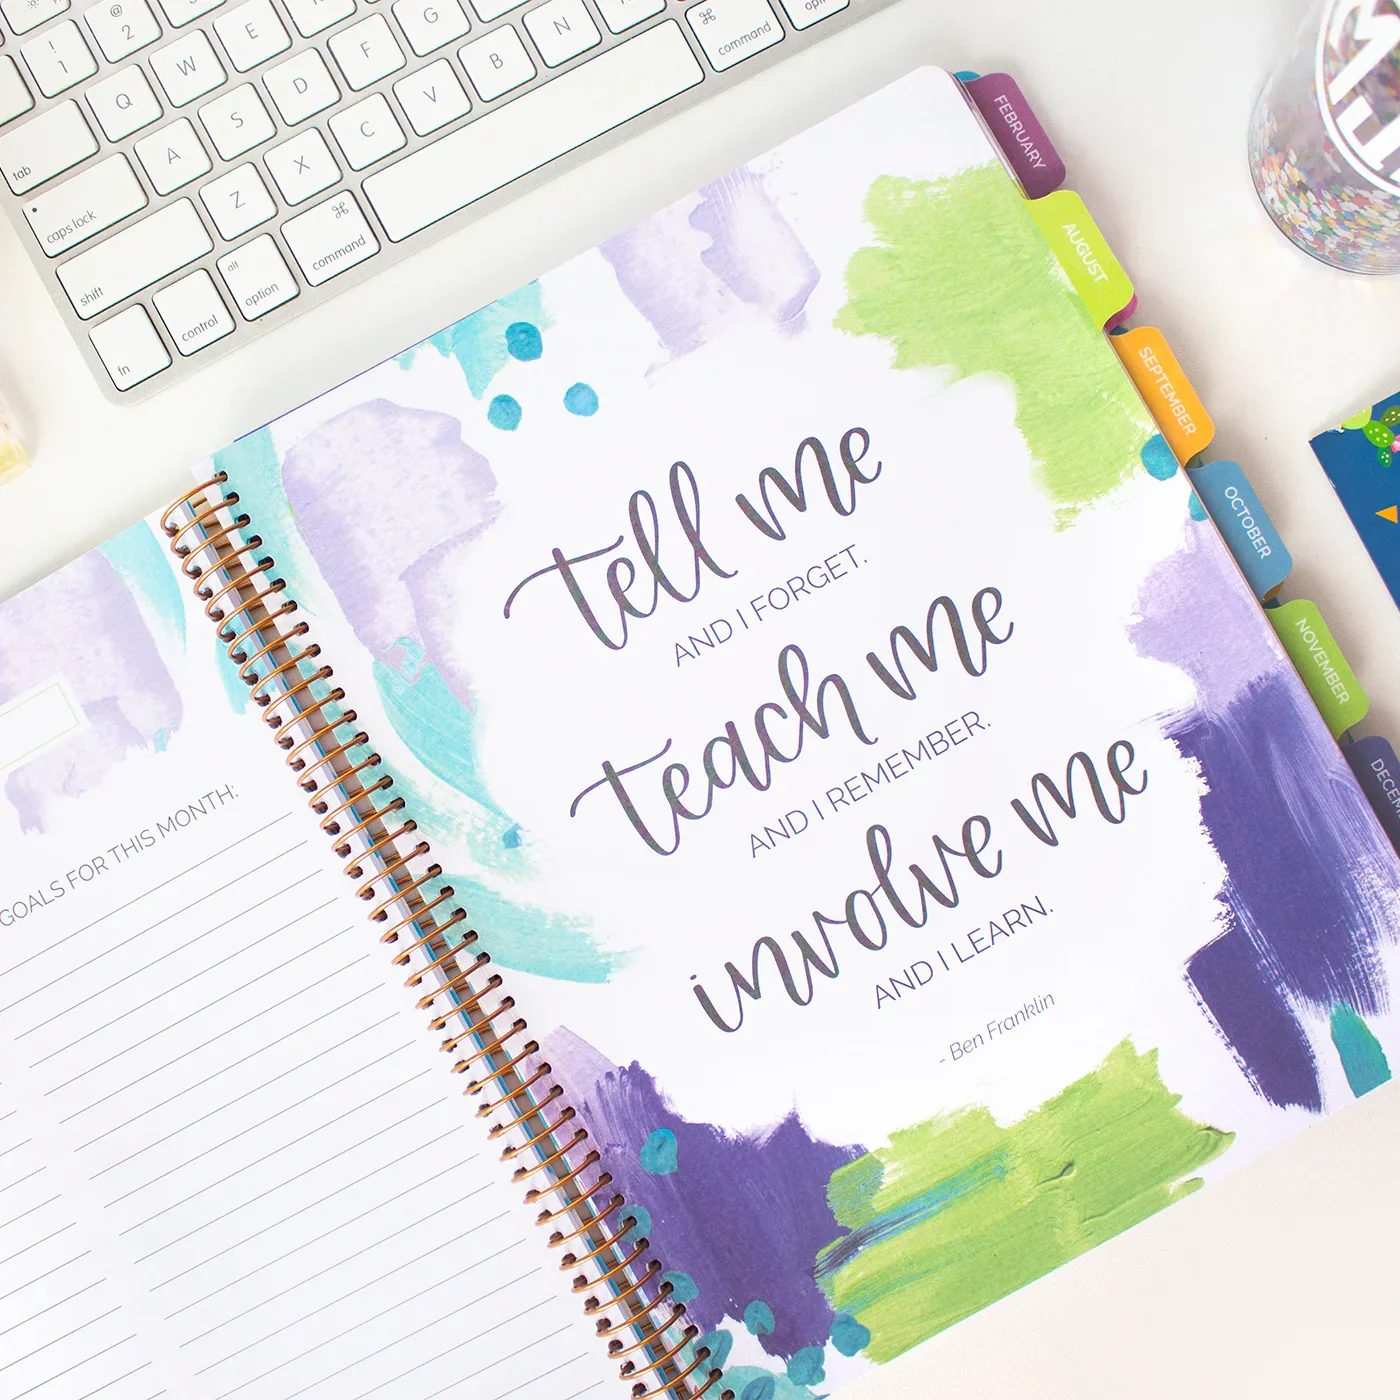 ! 1
@ 2
Q W E
F G
tab
A S D
caps lock
Z X C V B N
shift
fn
control
alt
option
⌘
command
⌘
command
GOALS FOR THIS MONTH:
tell me
AND I FORGET.
teach me
AND I REMEMBER.
involve me
AND I LEARN.
- Ben Franklin
FEBRUARY
AUGUST
SEPTEMBER
OCTOBER
NOVEMBER